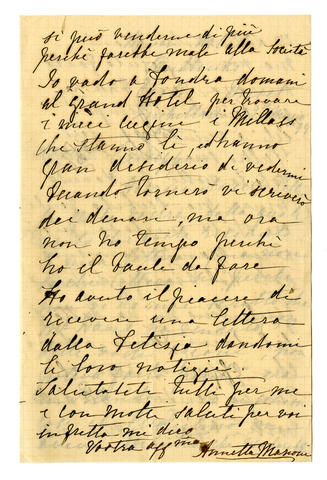 si può venderne di più
perchè farebbe male alla Società
Io vado a Londra domani
al Grand Hotel per trovare
i miei cugini i Millass
che stanno lì, ed hanno
gran desiderio di vedermi
Quando tornerò vi scriverò
dei denari, ma ora
non ho tempo perchè
ho il baule da fare
Ho avuto il piacere di
ricevere una lettera
dalla Letizia dandomi
le loro notizie.
Salutateli tutti per me
e con molti saluti per voi
in fretta mi dico
Vostra affma
Annetta